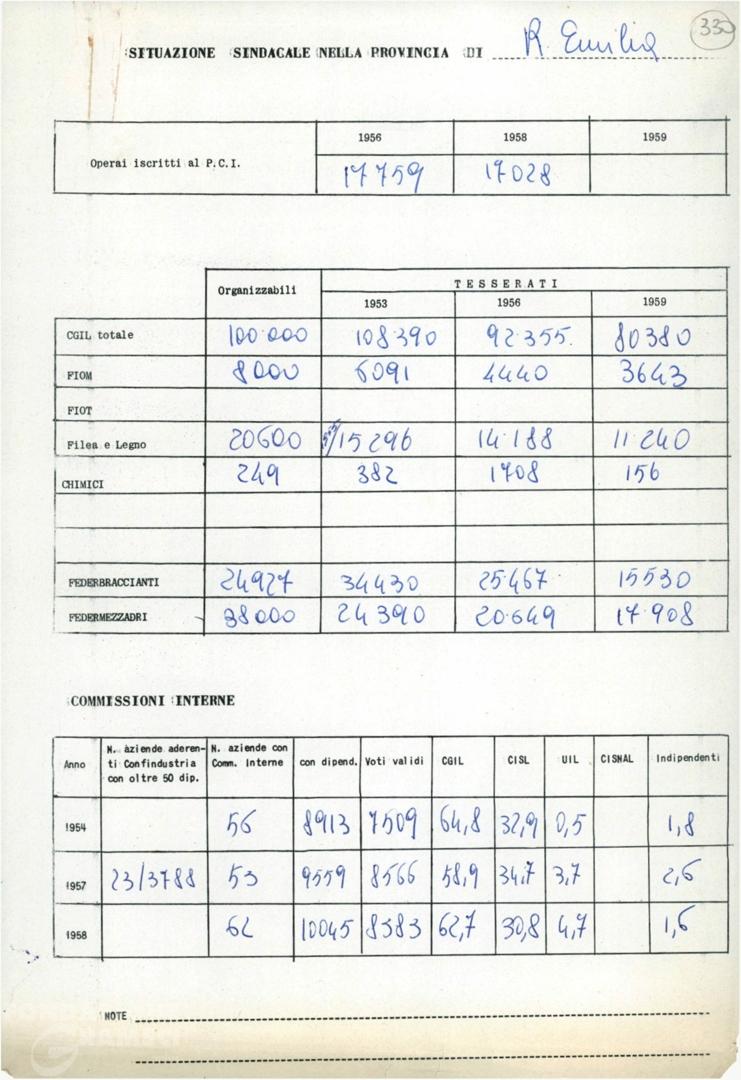 330
SITUAZIONE SINDACALE NELLA PROVINCIA DI R. Emilia
1956 1958 1959
Operai iscritti al P.C.I. 17759 17028
Organizzabili TESSERATI
1953 1956 1959
CGIL totale 100.000 108.390 92.355. 80380
FIOM 8000 6091 4440 3643
FIOT
Filea e Legno 20600 15296 14.188 11.240
CHIMICI 249 382 1708 156
FEDERBRACCIANTI 24927 34430 25.467 15530
FEDERMEZZADRI 38000 24390 20.649 17.908
COMMISSIONI INTERNE
Anno N. aziende aderen- N. aziende con con dipend. Voti validi CGIL CISL UIL CISNAL Indipendenti
ti Confindustria Comm. Interne
con oltre 50 dip.
1954 56 8913 7509 64,8 32,9 0,5 1,8
1957 23/3788 53 9559 8566 58,9 34,7 3,7 2,6
1958 62 10045 8383 62,7 30,8 4,7 1,6
NOTE